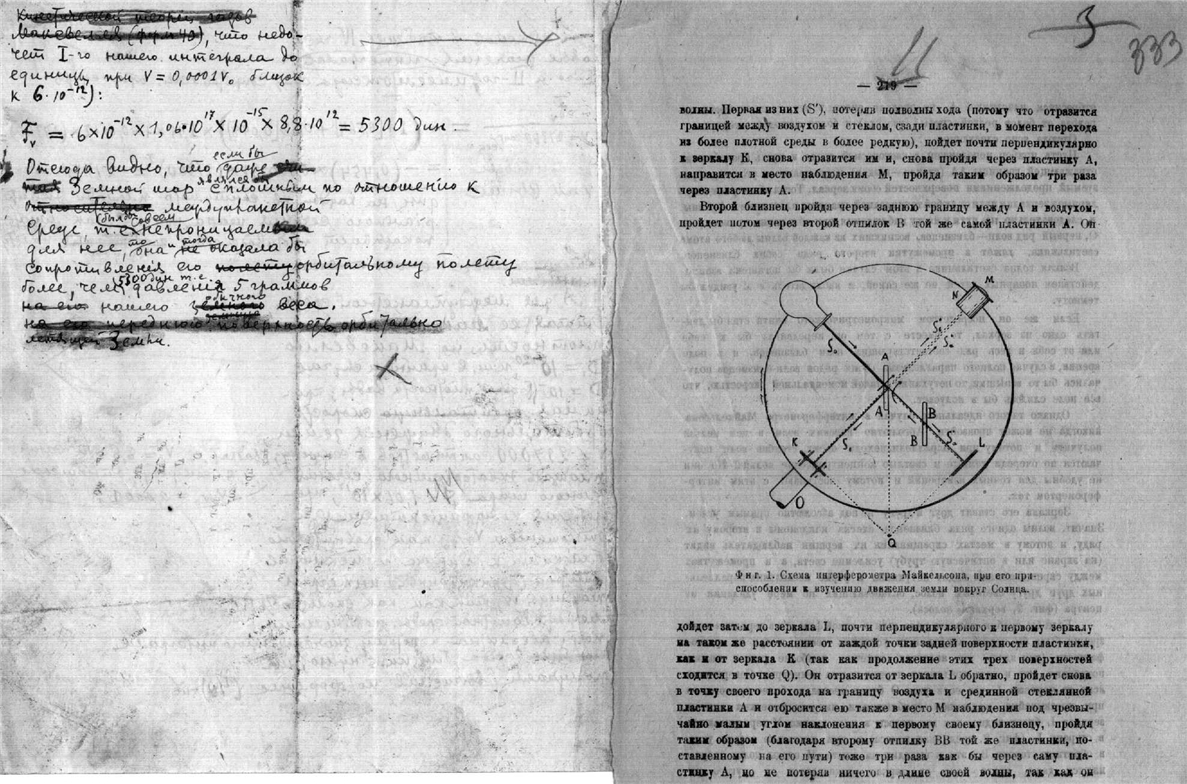 Кинетической теории газов
Максвелля (форм 40), что недо-
чет I-го нашего интеграла до
единицы при V = 0,0001V₀ близок
к 6·10⁻¹²):
Fᵥ = 6×10⁻¹² × 1,06·10¹⁷ × 10⁻¹⁵ × 8,8·10¹² = 5300 дин.
если бы
Отсюда видно, что даже
Земной шар сплошным по отношению к
междупланетной
был совсем
Среде, т. е. непроницаем
для нее, то она и тогда не оказала бы
сопротивления его орбитальному полету
5300 дин т. е.
более, чем давления 5 граммов
обычного
на его нашего земного веса.
на его переднюю поверхность орбитально
летящей Земли.
3
333
— 219 —
волны. Первая из них (S'), потеряв полволны хода (потому что отразится
границей между воздухом и стеклом, сзади пластинки, в момент перехода
из более плотной среды в более редкую), пойдет почти перпендикулярно
к зеркалу K, снова отразится им и, снова пройдя через пластинку A,
направится в место наблюдения M, пройдя таким образом три раза
через пластинку A.
Второй близнец пройдя через заднюю границу между A и воздухом,
пройдет потом через второй отпилок B той же самой пластинки A. Он
M
N
S₀
A
A
B
B
S₀
L
K
S₁
O
Q
Фиг. 1. Схема интерферометра Майкельсона, при его при-
способлении к изучению движения земли вокруг Солнца.
дойдет затем до зеркала L, почти перпендикулярного к первому зеркалу
на таком же расстоянии от каждой точки задней поверхности пластинки,
как и от зеркала K (так как продолжение этих трех поверхностей
сходится в точке Q). Он отразится от зеркала L обратно, пройдет снова
в точку своего прохода на границу воздуха и срединной стеклянной
пластинки A и отбросится ею также в место M наблюдения под чрезвы-
чайно малым углом наклонения к первому своему близнецу, пройдя
таким образом (благодаря второму отпилку BB той же пластинки, по-
ставленному на его пути) тоже три раза как бы через саму пла-
стинку A, но не потеряв ничего в длине своей волны, так как он